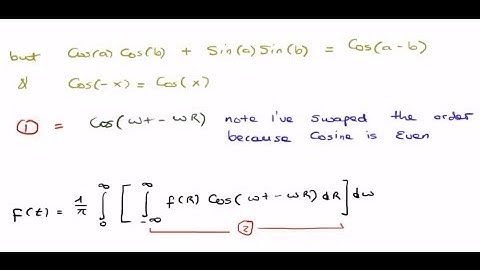 but Cos(a) Cos(b) + Sin(a) Sin(b) = Cos(a-b)
& Cos(-x) = Cos(x)
① = Cos(wt - wR) note I've swaped the order
because Cosine is Even
F(t) = 1/π ∫₀^∞ [ ∫₋∞^∞ f(R) Cos(wt - wR) dR ] dw
②